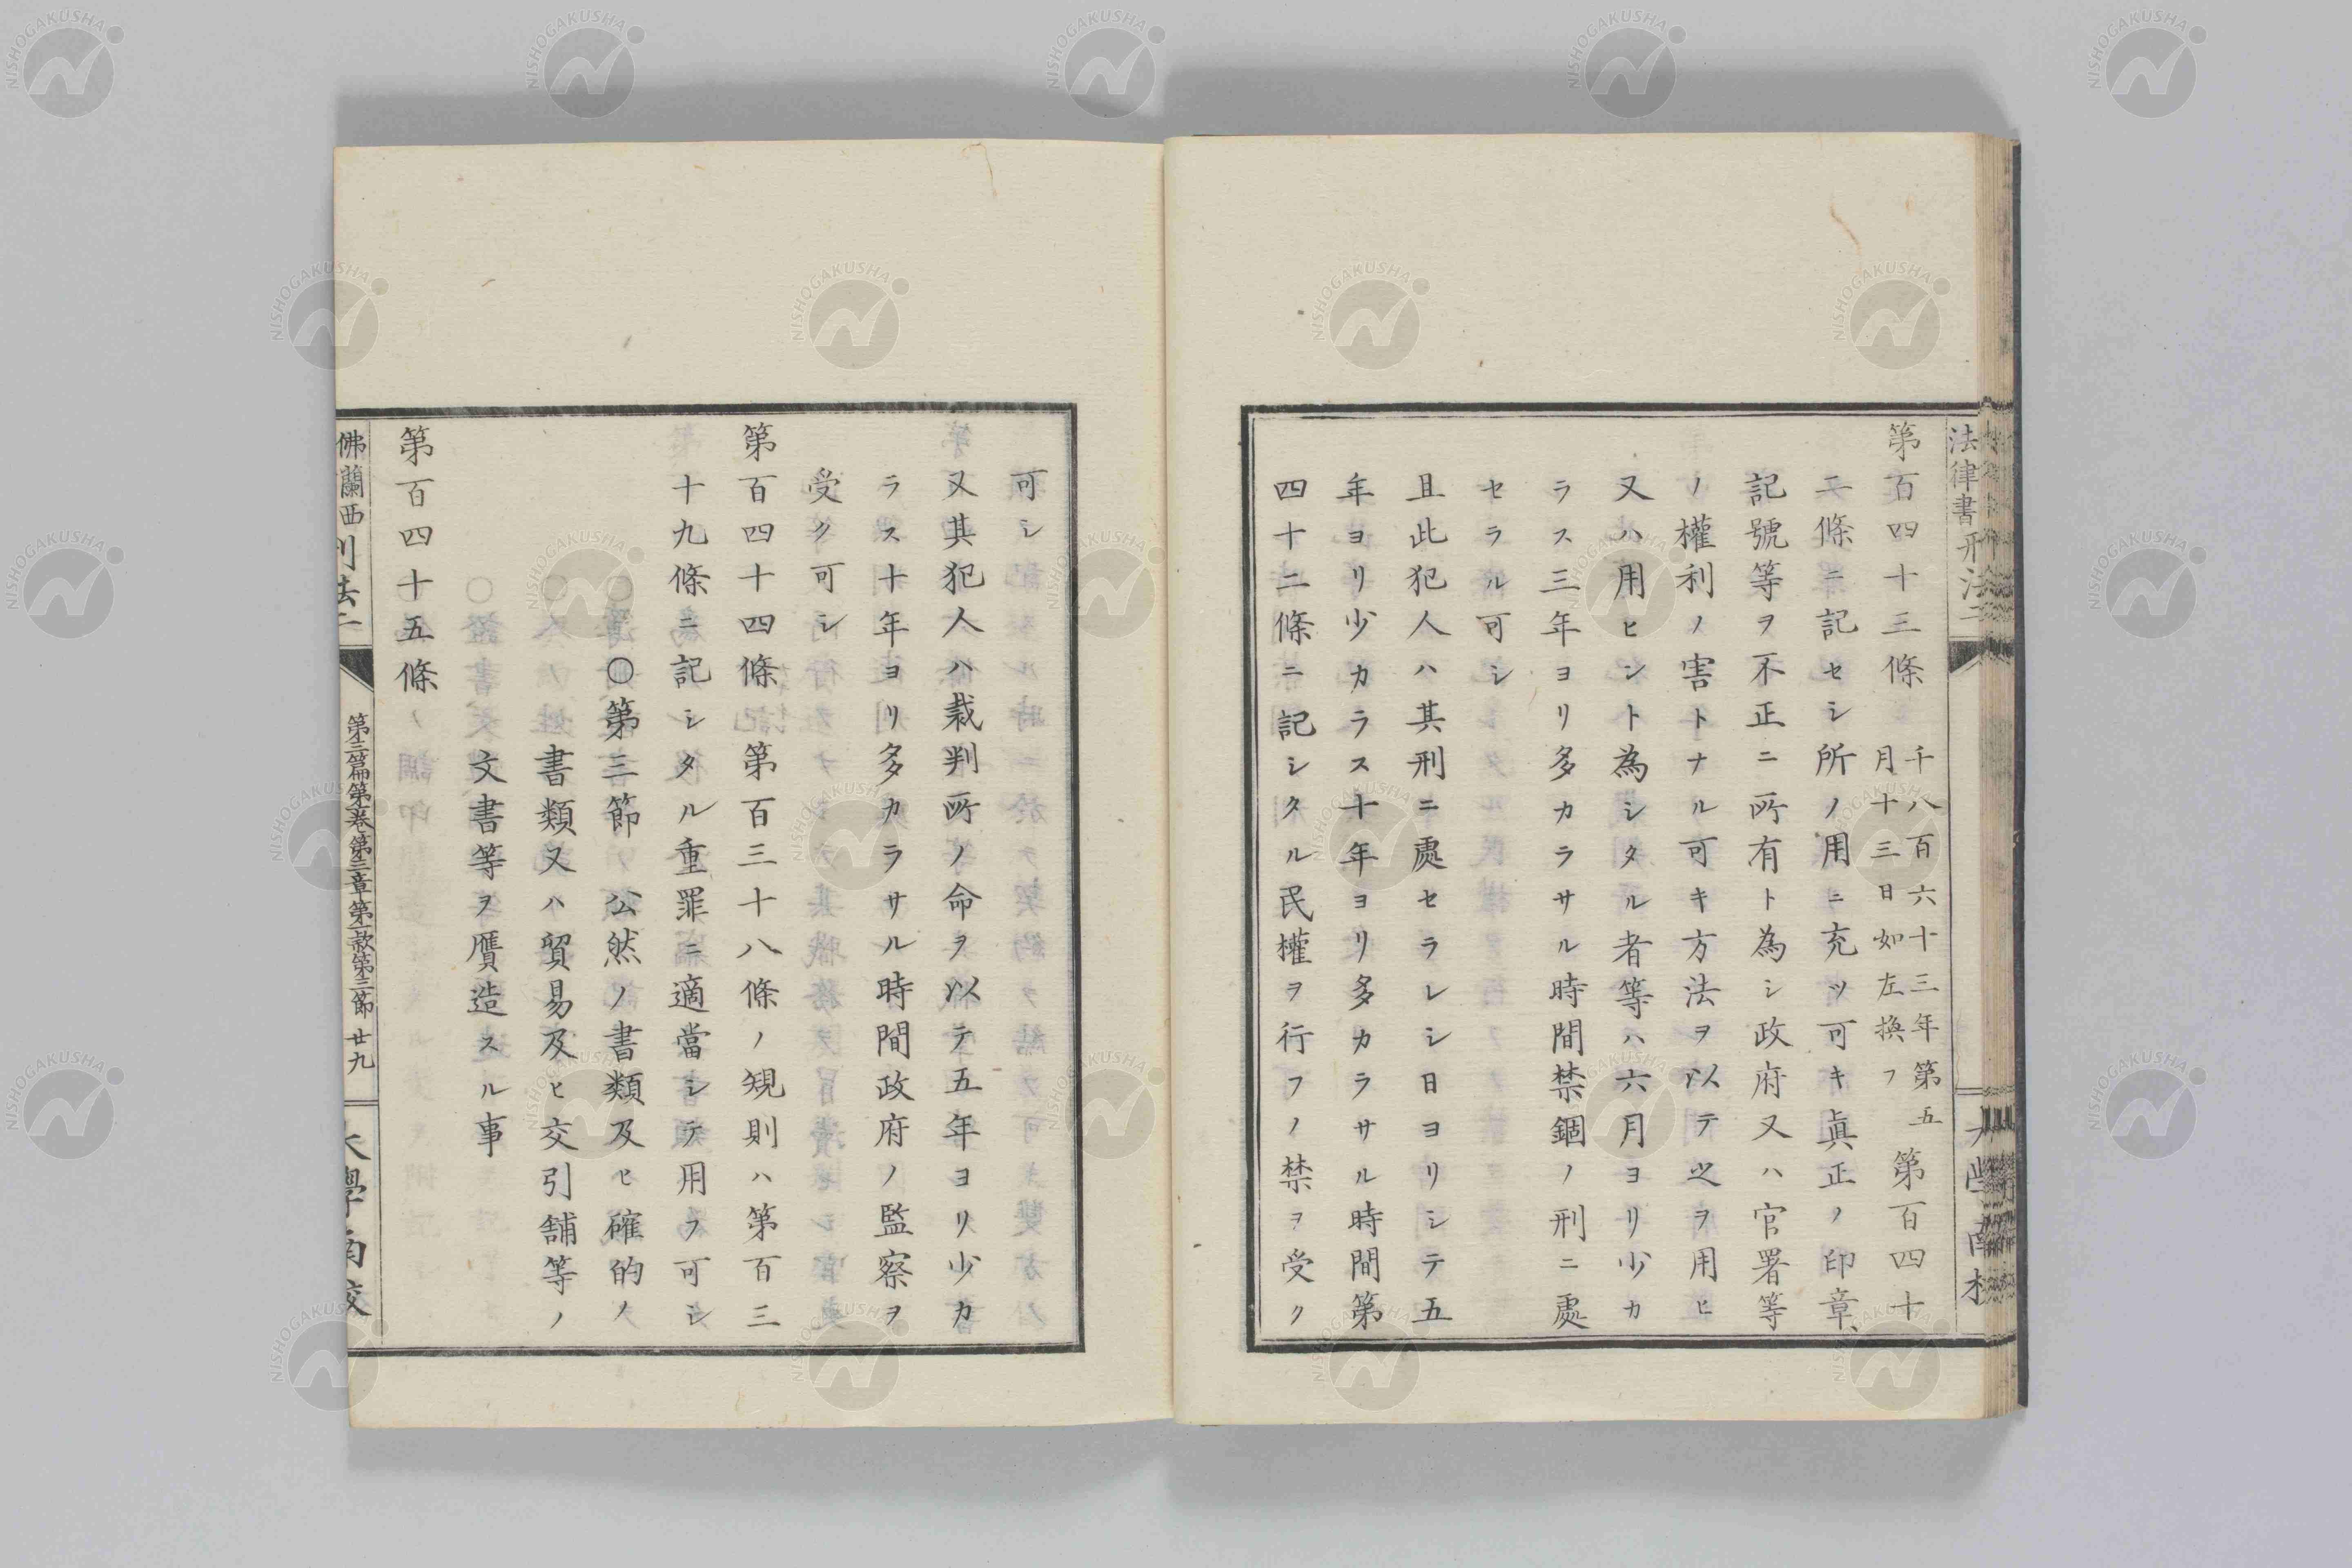 法律書刑法二
第百四十三條 千八百六十三年第五月十三日如左換フ 第百四十
二條ニ記セシ所ノ用ニ充ツ可キ眞正ノ印章、
記號等ヲ不正ニ所有ト為シ政府又ハ官署等
ノ權利ノ害トナル可キ方法ヲ以テ之ヲ用ヒ
又ハ用ヒントシ為シタル者等ハ六月ヨリ少カ
ラス三年ヨリ多カラサル時間禁錮ノ刑ニ處
セラル可シ
且此犯人ハ其刑ニ處セラレシ日ヨリシテ五
年ヨリ少カラス十年ヨリ多カラサル時間第
四十二條ニ記シタル民權ヲ行フノ禁ヲ受ク
可シ
又其犯人ハ裁判所ノ命ヲ以テ五年ヨリ少カ
ラス十年ヨリ多カラサル時間政府ノ監察ヲ
受ク可シ
第百四十四條 第百三十八條ノ規則ハ第百三
十九條ニ記シタル重罪ニ適當シテ用フ可シ
○第三節 公然ノ書類及ヒ確的ノ
書類又ハ貿易及ヒ交引舗等ノ
文書等ヲ贋造スル事
第百四十五條
佛蘭西刑法二 第三篇第一卷第三章第一款第三節 廿九 大學南校
NISHOGAKUSHA